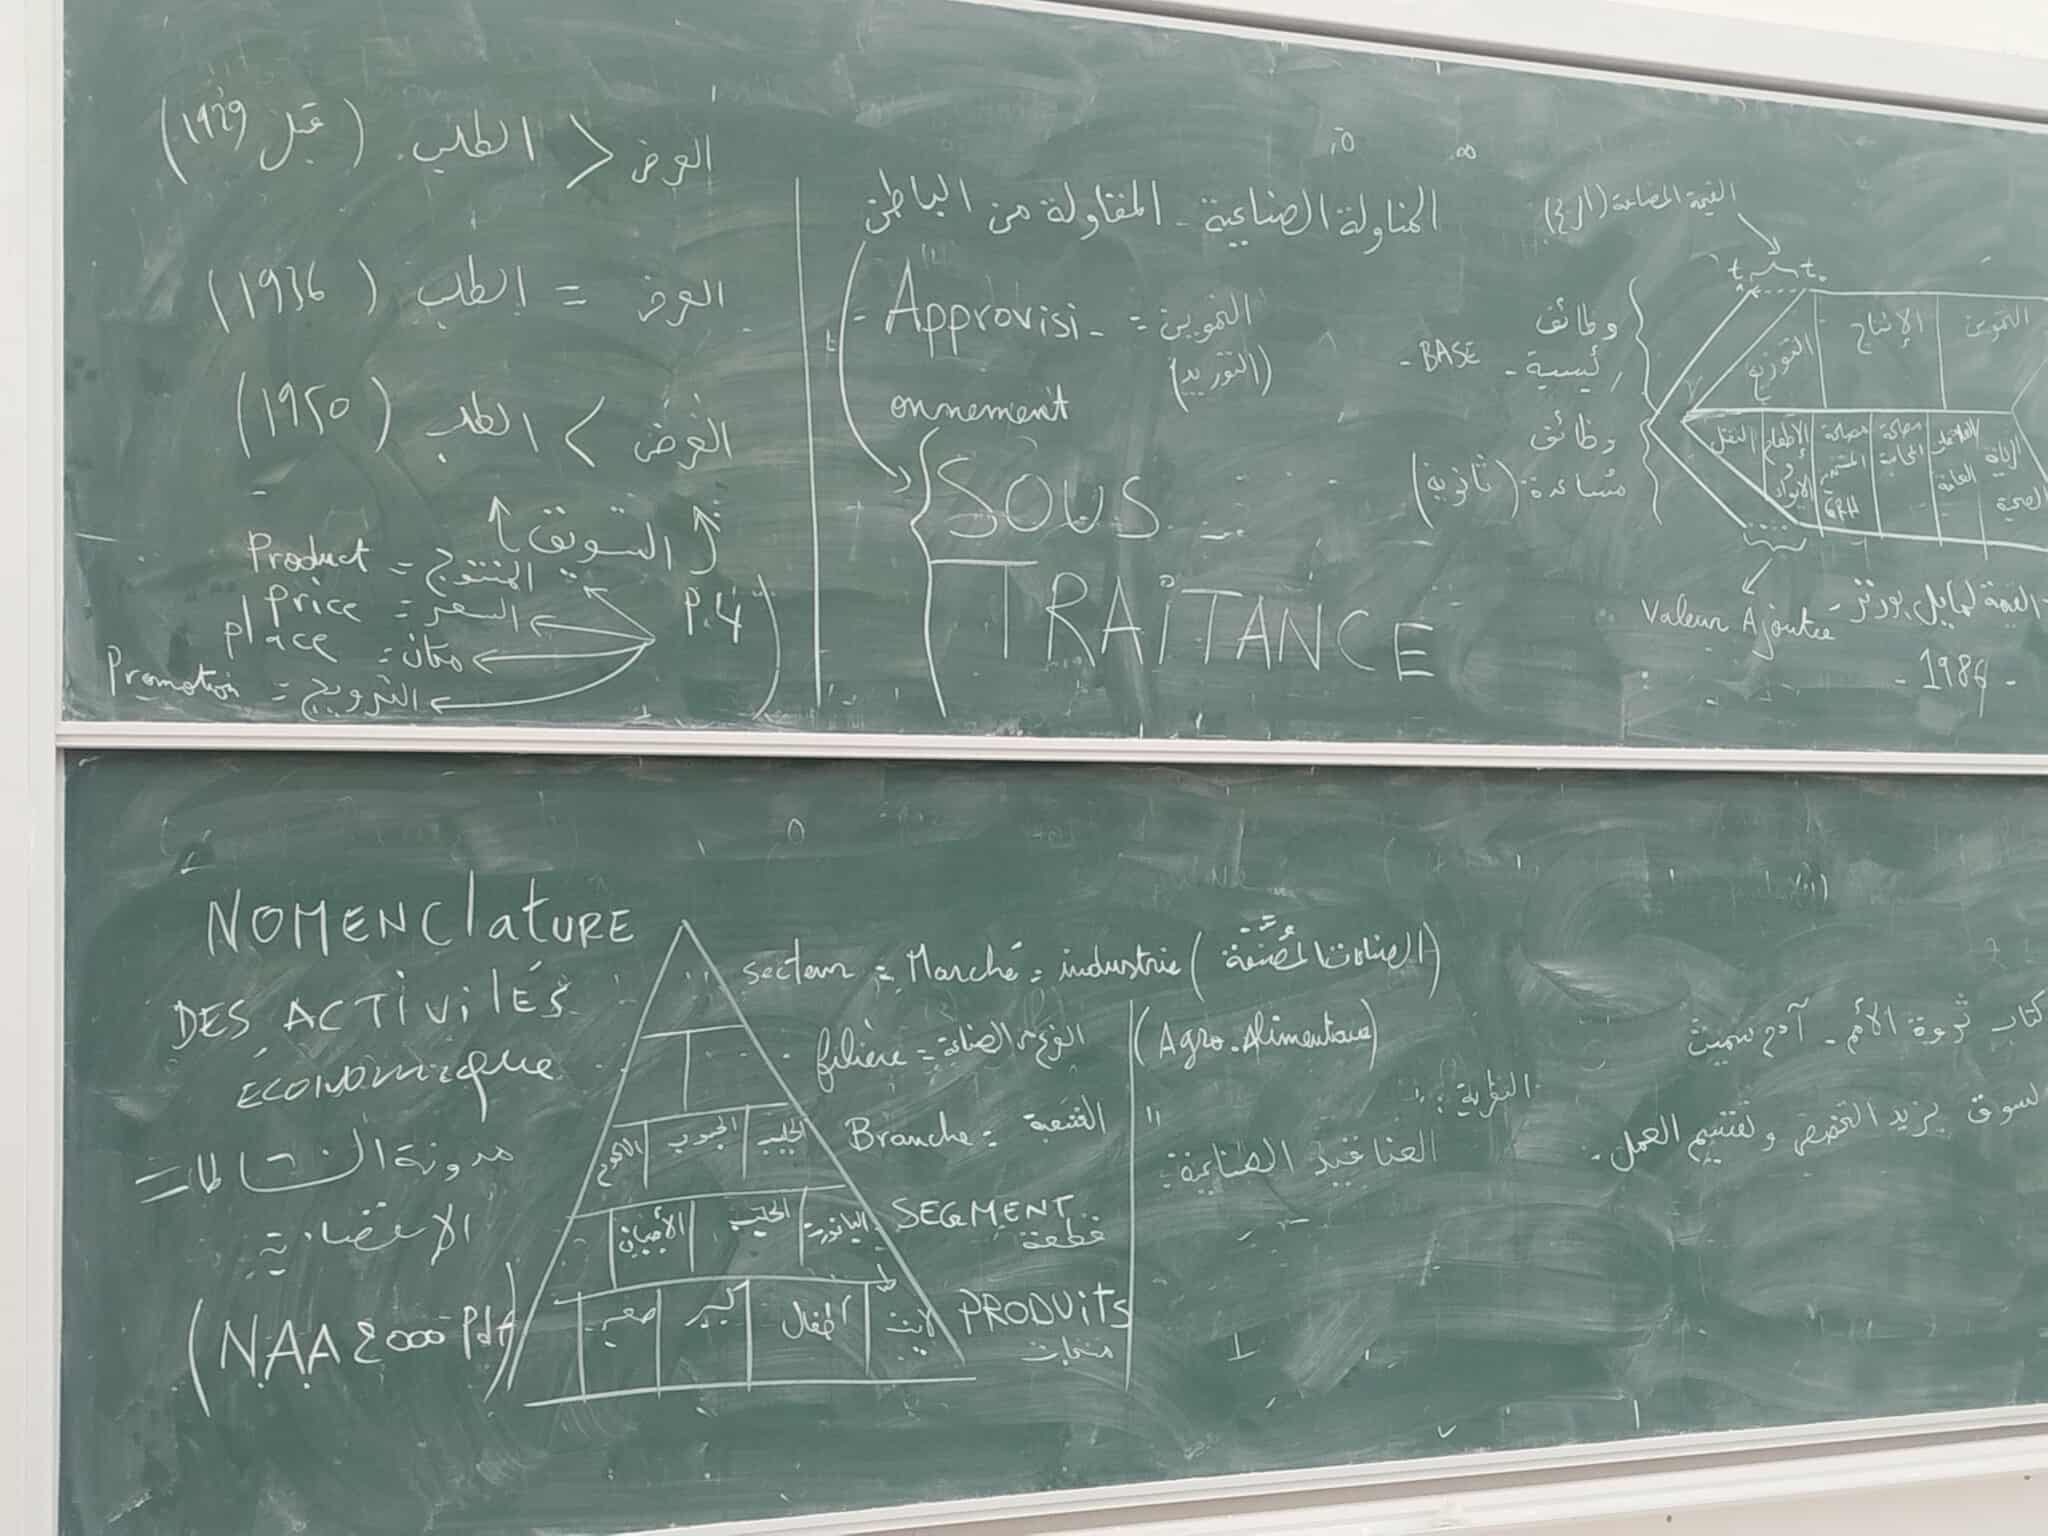 العرض > الطلب. (قبل 1929)
العرض = الطلب (1936)
العرض < الطلب (1950)
التسويق
P.4
Product = المنتوج
Price = السعر
place = مكان
Promotion = الترويج
المناولة الصناعية - المقاولة من الباطن
= Approvisi - = التموين
onnement (التوريد)
SOUS
TRAITANCE
القيمة المضافة (الربح)
وظائف
رئيسية - BASE -
وظائف
مساعدة (ثانوية)
التموين
الإنتاج
التوزيع
العلاقات
العامة
مصلحة
المحاسبة
GRH
الإطعام
و
الإيواء
النقل
Valeur Ajoutée
القيمة لمايكل بورتر -
- 1986 -
NOMENClatURE
DES ACTiVitÉS
ÉCONOMique
= مدونة النشاطات
الاقتصادية
(NAA 2000 Pdf)
secteur = Marché = industrie (الصناعات المصنعة)
filière = الفرع الصناعة (Agro-Alimentaire)
Branche = الشعبة "
SEGMENT
قطعة
PRODUitS
منتجات
الحليب
الحبوب
اللحوم
الياغورت
الحليب
الأجبان
لايت
أطفال
كبير
صغير
النظرية:
العناقيد الصناعية
كتاب ثروة الأمم - آدم سميث
السوق يزيد التخصص وتقسيم العمل.